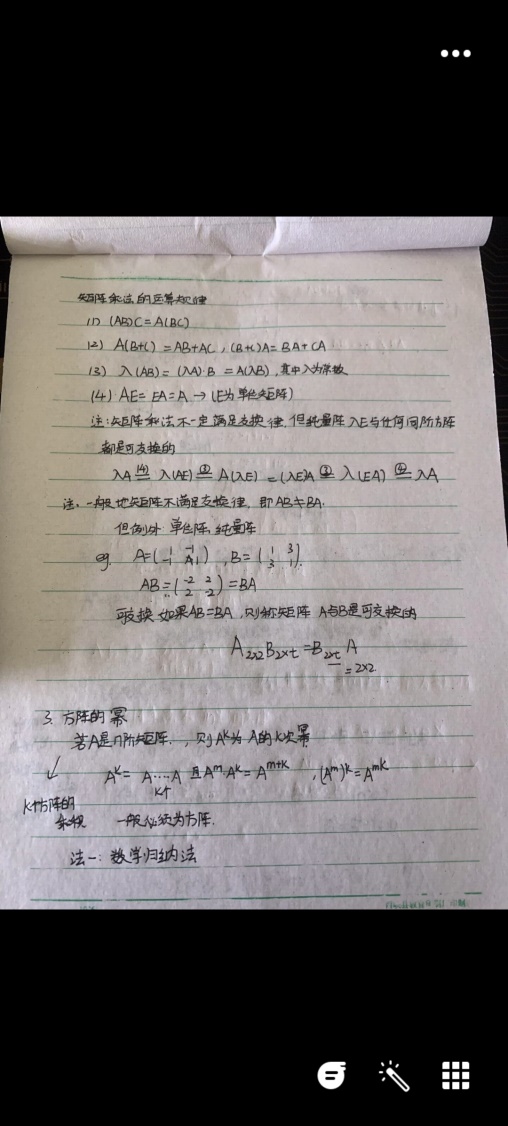 矩阵乘法的运算规律
(1) (AB)C=A(BC)
(2) A(B+C)=AB+AC, (B+C)A=BA+CA
(3) λ(AB)=(λA)·B=A(λB), 其中λ为常数
(4) AE=EA=A → (E为单位矩阵)
注:矩阵乘法不一定满足交换律,但纯量阵λE与任何同阶方阵
都是可交换的
λA (4)= λ(AE) ③= A(λE) =(λE)A ③= λ(EA) ④= λA
注. 一般地矩阵不满足交换律, 即AB≠BA.
但例外 单位阵, 纯量阵
eg. A=(1 -1 -1 1), B=(1 3 3 1).
AB=(-2 2 2 -2)=BA
可交换 如果AB=BA, 则称矩阵 A与B是可交换的
A2×2 B2×t=B2×t A
=2×2.
3. 方阵的幂
若A是n阶矩阵., 则A^k为A的k次幂
A^k= A····A 且A^m A^k=A^{m+k} , (A^m)^k=A^{mk}
k个
k个方阵的
乘积 一般必须为方阵.
法一: 数学归纳法